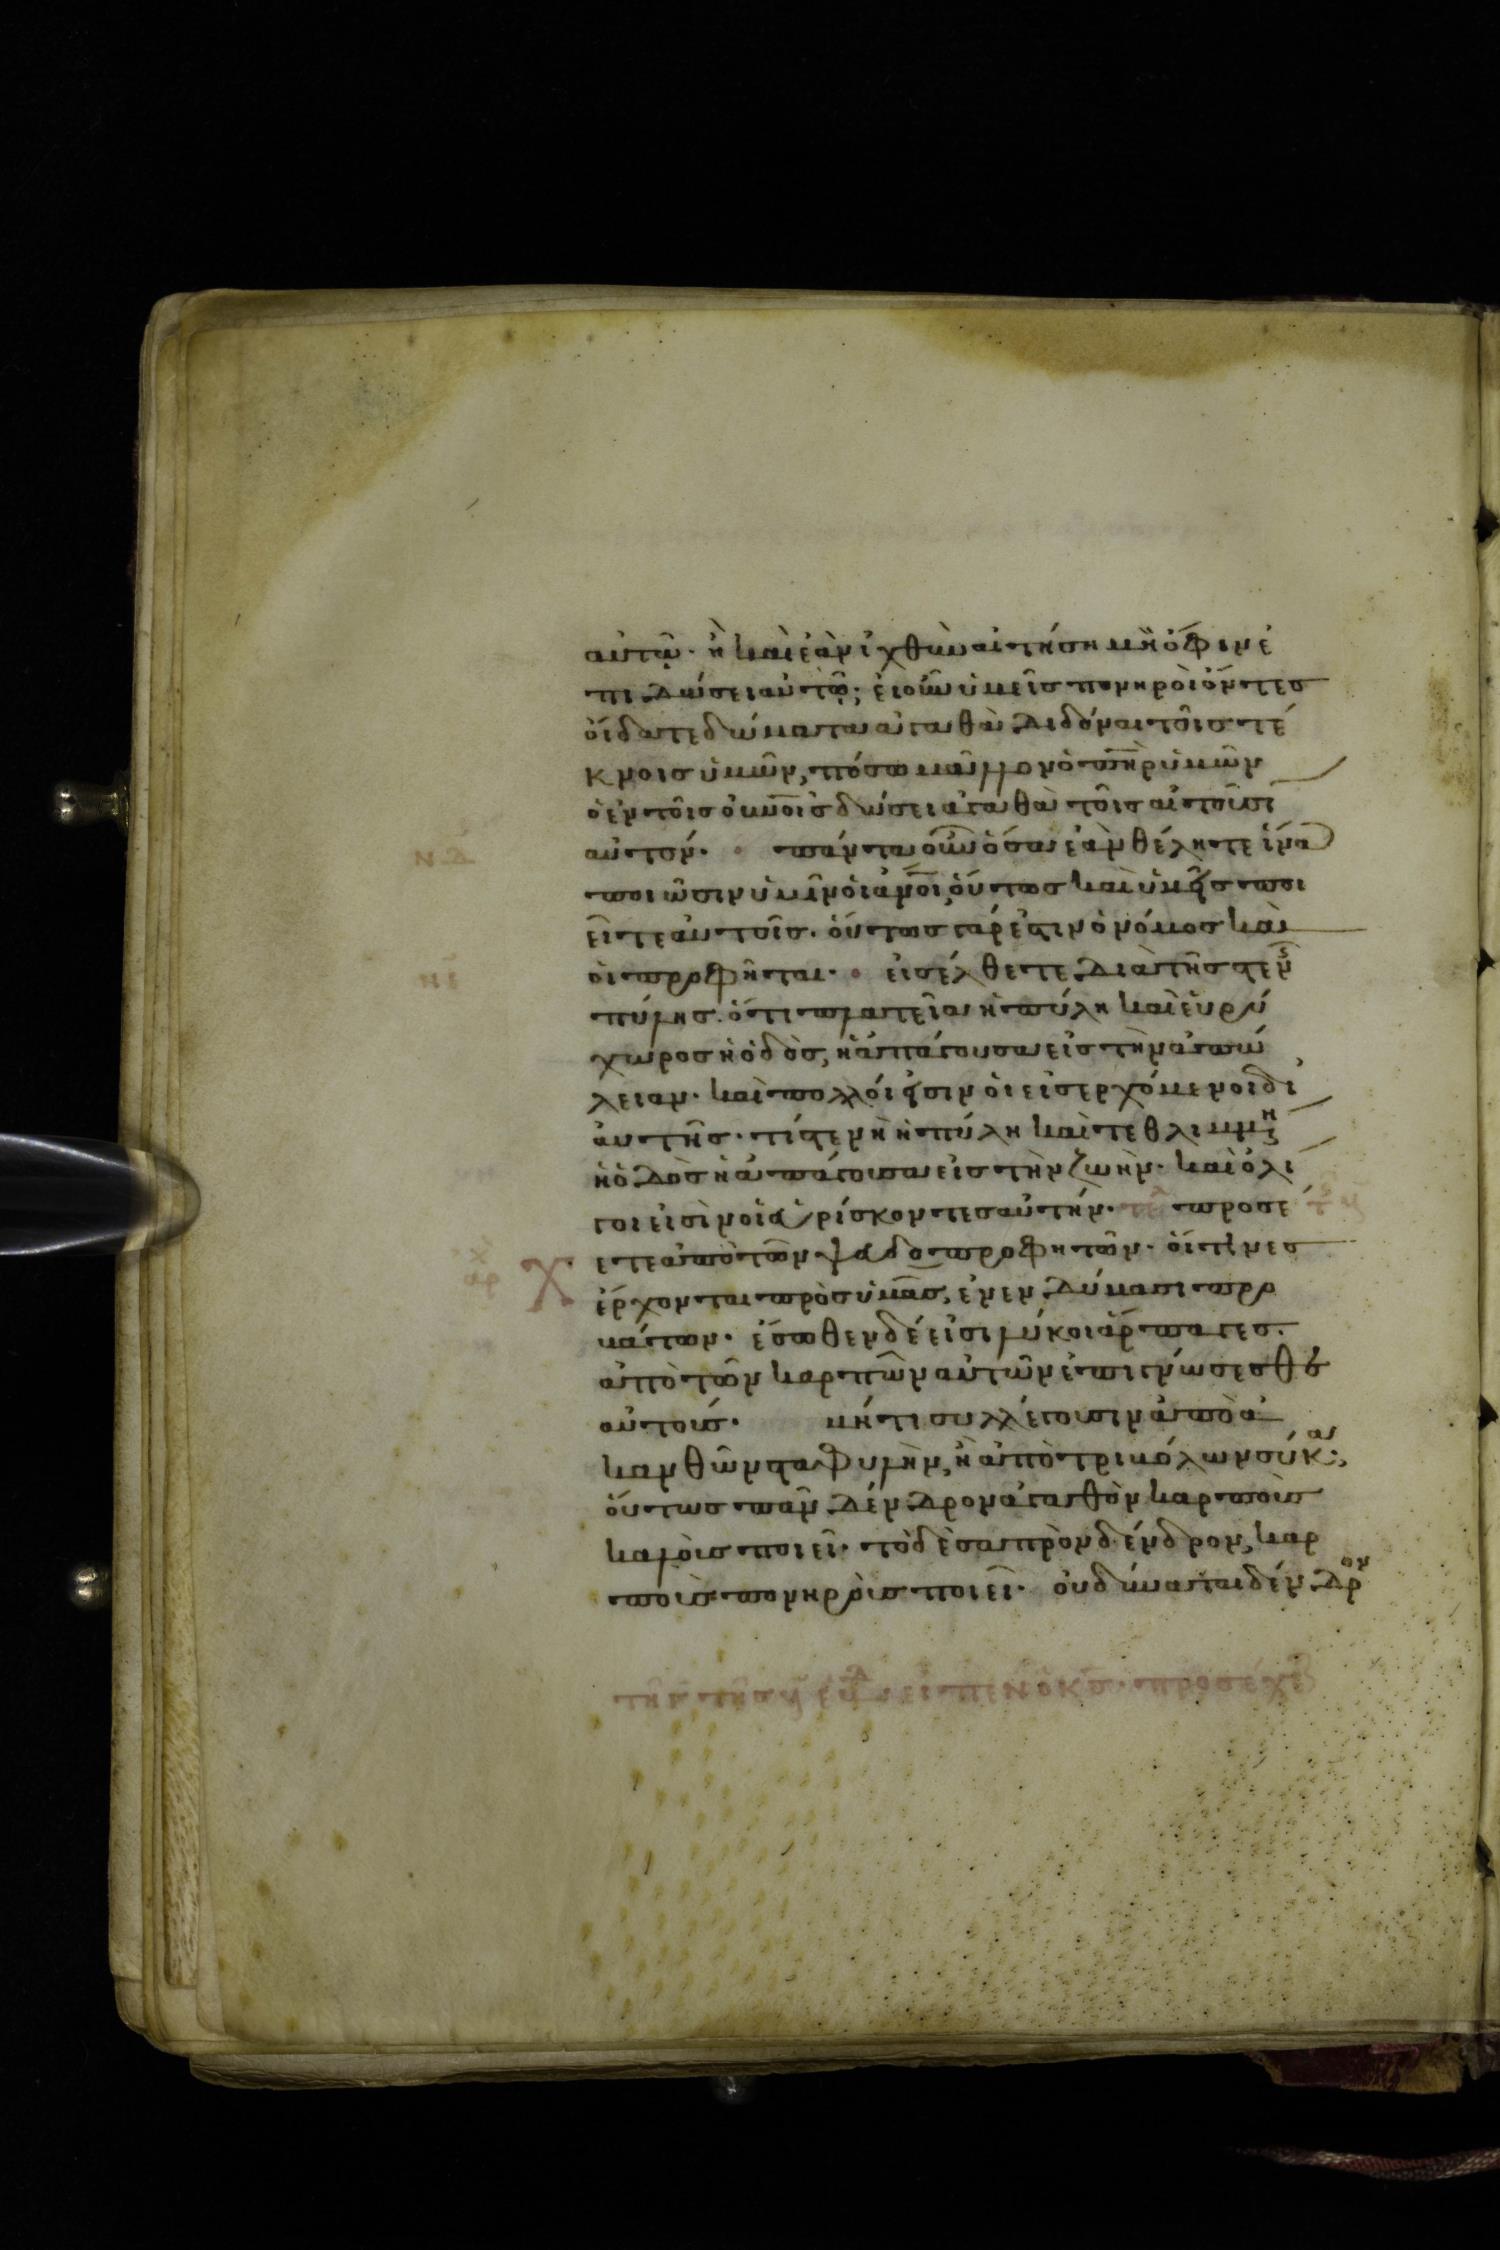 αὐτῶ· ἢ καὶ ἐὰν ἰχθὺν αἰτήση μὴ ὄφιν ἐ
πιδώσει αὐτῶ; εἰ οὖν ὑμεῖς πονηροὶ ὄντες
οἴδατε δώματα ἀγαθὰ διδόναι τοῖς τέ
κνοις ὑμῶν, πόσω μᾶλλον ὁ πηρ ὑμῶν
ὁ ἐν τοῖς οὐνοις δώσει ἀγαθὰ τοῖς αἰτοῦσι
αὐτόν· πάντα οὖν ὅσα ἐὰν θέλητε ἵνα
ΝΔ
ποιῶσιν ὑμῖν οἱ ἀνοι, οὕτως καὶ ὑμεῖς ποι
εῖτε αὐτοῖς· οὕτως γάρ ἐστιν ὁ νόμος καὶ
οἱ προφῆται· εἰσέλθετε διὰ τῆς στενς
ΝΕ
πύλης· ὅτι πλατεῖα ἡ πύλη καὶ εὐρύ
χωρος ἡ ὁδὸς, ἡ ἀπάγουσα εἰς τὴν ἀπώ
λειαν· καὶ πολλοί εἰσιν οἱ εἰσερχόμενοι δι
αὐτῆς· τί στενὴ ἡ πύλη καὶ τεθλιμμένη
ἡ ὁδὸς ἡ ἀπάγουσα εἰς τὴν ζωὴν· καὶ ὀλί
γοι εἰσὶν οἱ εὑρίσκοντες αὐτήν· τε προσέ
Χ ετε ἀπὸ τῶν ψευδοπροφητῶν· οἵτινες
αρχ
ἔρχονται πρὸς ὑμᾶς, ἐν ἐνδύμασι προ
βάτων· ἔσωθεν δέ εἰσι λύκοι ἅρπαγες·
ἀπὸ τῶν καρπῶν αὐτῶν ἐπιγνώσεσθε
αὐτούς· μήτι συλλέγουσιν ἀπὸ ἀ
κανθῶν σταφυλὴν, ἢ ἀπὸ τριβόλων σύκα;
οὕτως πᾶν δένδρον ἀγαθὸν καρποὺς
καλοὺς ποιεῖ· τὸ δὲ σαπρὸν δένδρον, καρ
ποὺς πονηροὺς ποιεῖ· οὐ δύναται δένδρον
εἶπεν ὁ κς· προσέχε